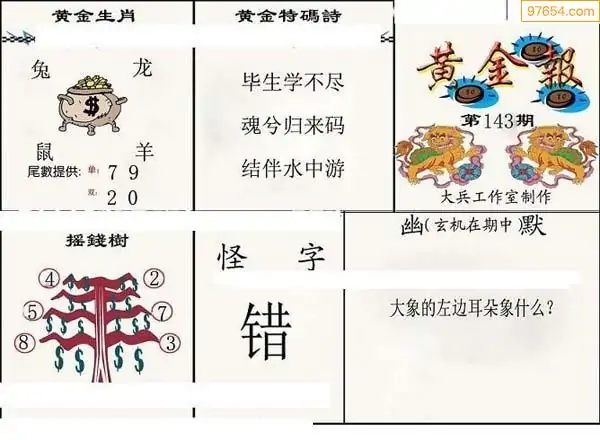 97654.com
黄金生肖
兔 龙
鼠 羊
尾數提供: 单: 7 9
双: 2 0
黄金特碼詩
毕生学不尽
魂兮归来码
结伴水中游
黄金報
第143期
大兵工作室制作
摇錢樹
④ ②
⑤ ⑦
⑧ ③
怪 字
错
幽(玄机在期中)默
大象的左边耳朵象什么?